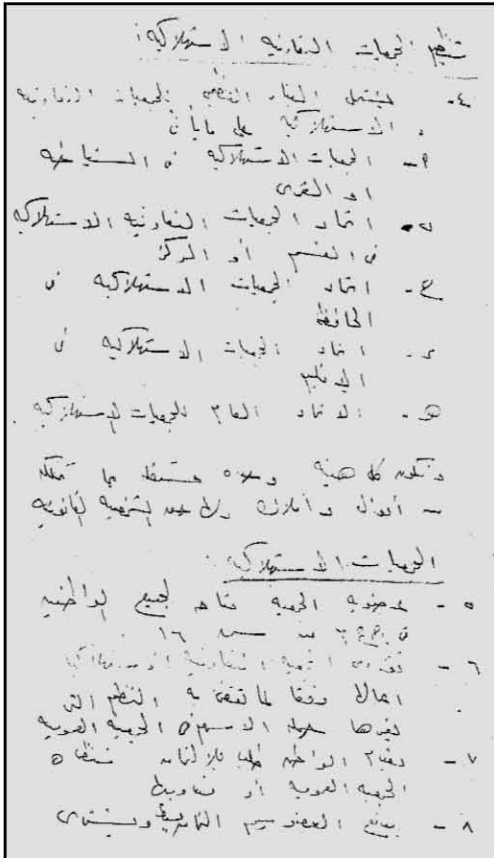 تنظيم الجمعيات التعاونية الاستهلاكية :
٤- يشتمل البناء التنظيمى للجمعيات التعاونية
الاستهلاكية على ما يأتى
٩- الجمعيات الاستهلاكية فى
او القرى
ب- اتحاد الجمعيات التعاونية الاستهلاكية
فى القسم أو المركز
ج- اتحاد الجمعيات الاستهلاكية فى
المحافظة
د- اتحاد الجمعيات الاستهلاكية فى
الإقليم
هـ- الاتحاد العام للجمعيات الإستهلاكية
وتكون كل هيئة وحده مستقلة بما تملكه
من أموال و ولها الشخصية القانونية
الجمعيات الاستهلاكية :
٥- عضوية الجمعية متاحه لجميع المواطنين
فى من سن ١٦
٦- الجمعية التعاونية الاستهلاكية
وفقا لما تقضى به النظم التى
تقرها الجمعية العمومية
٧- المواطن طلب
الجمعية العمومية أو
٨- العضو رسم